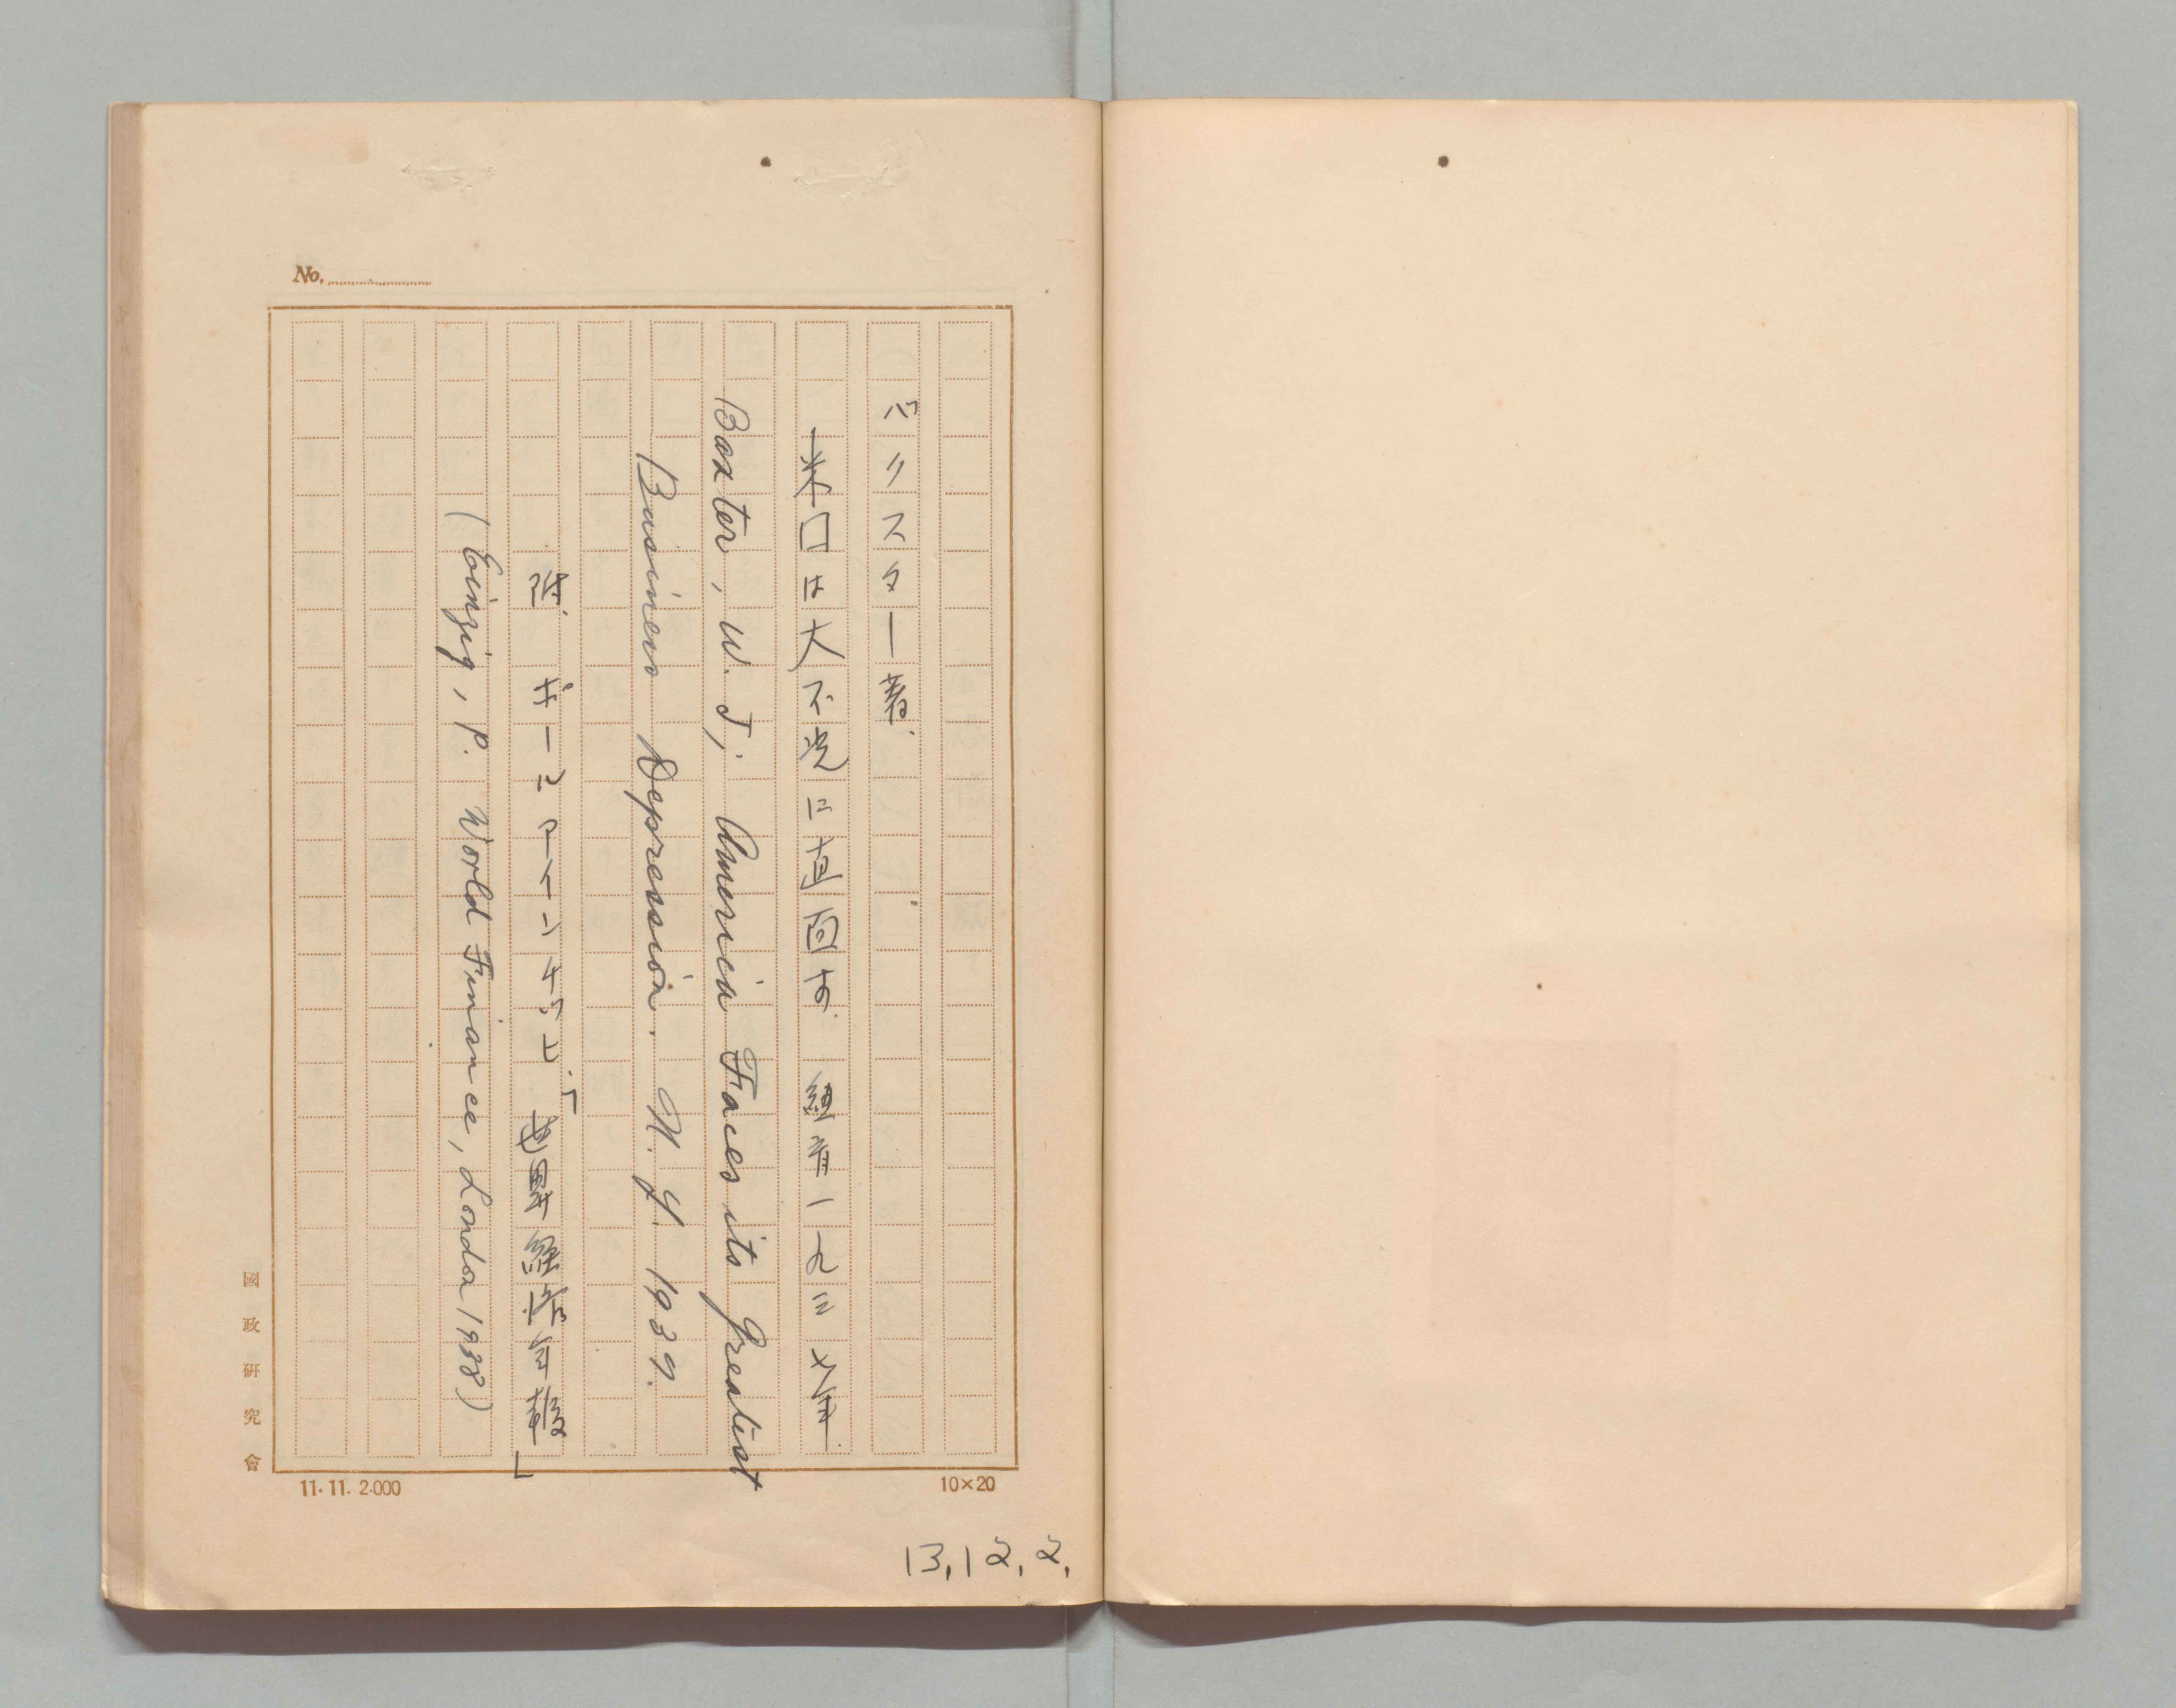 No.
バクスター著.
米囗は大不況に直面す. 紐育一九三七年.
Baxter, W. J; America Faces its Greatest
Business Depression. N. Y. 1937.
附. ポールアインチッヒ.「世界經済年報」
(Einzig, P. World Finance, London 1938)
國政研究會
11.11. 2.000
10×20
13,12,2,